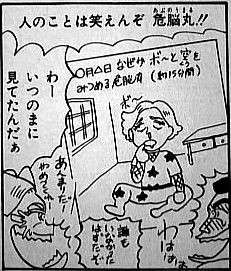 人のことは笑えんぞ 危脳丸!!
あぶのうまる
〇月△日 なぜか ボ〜と 空を
みつめる危脳丸 (約15分間)
ボ〜
わー
いつのまに
見てたんだぁ
あんまりだー
わめつー
誰も
いないった
はずだぞ
わはは